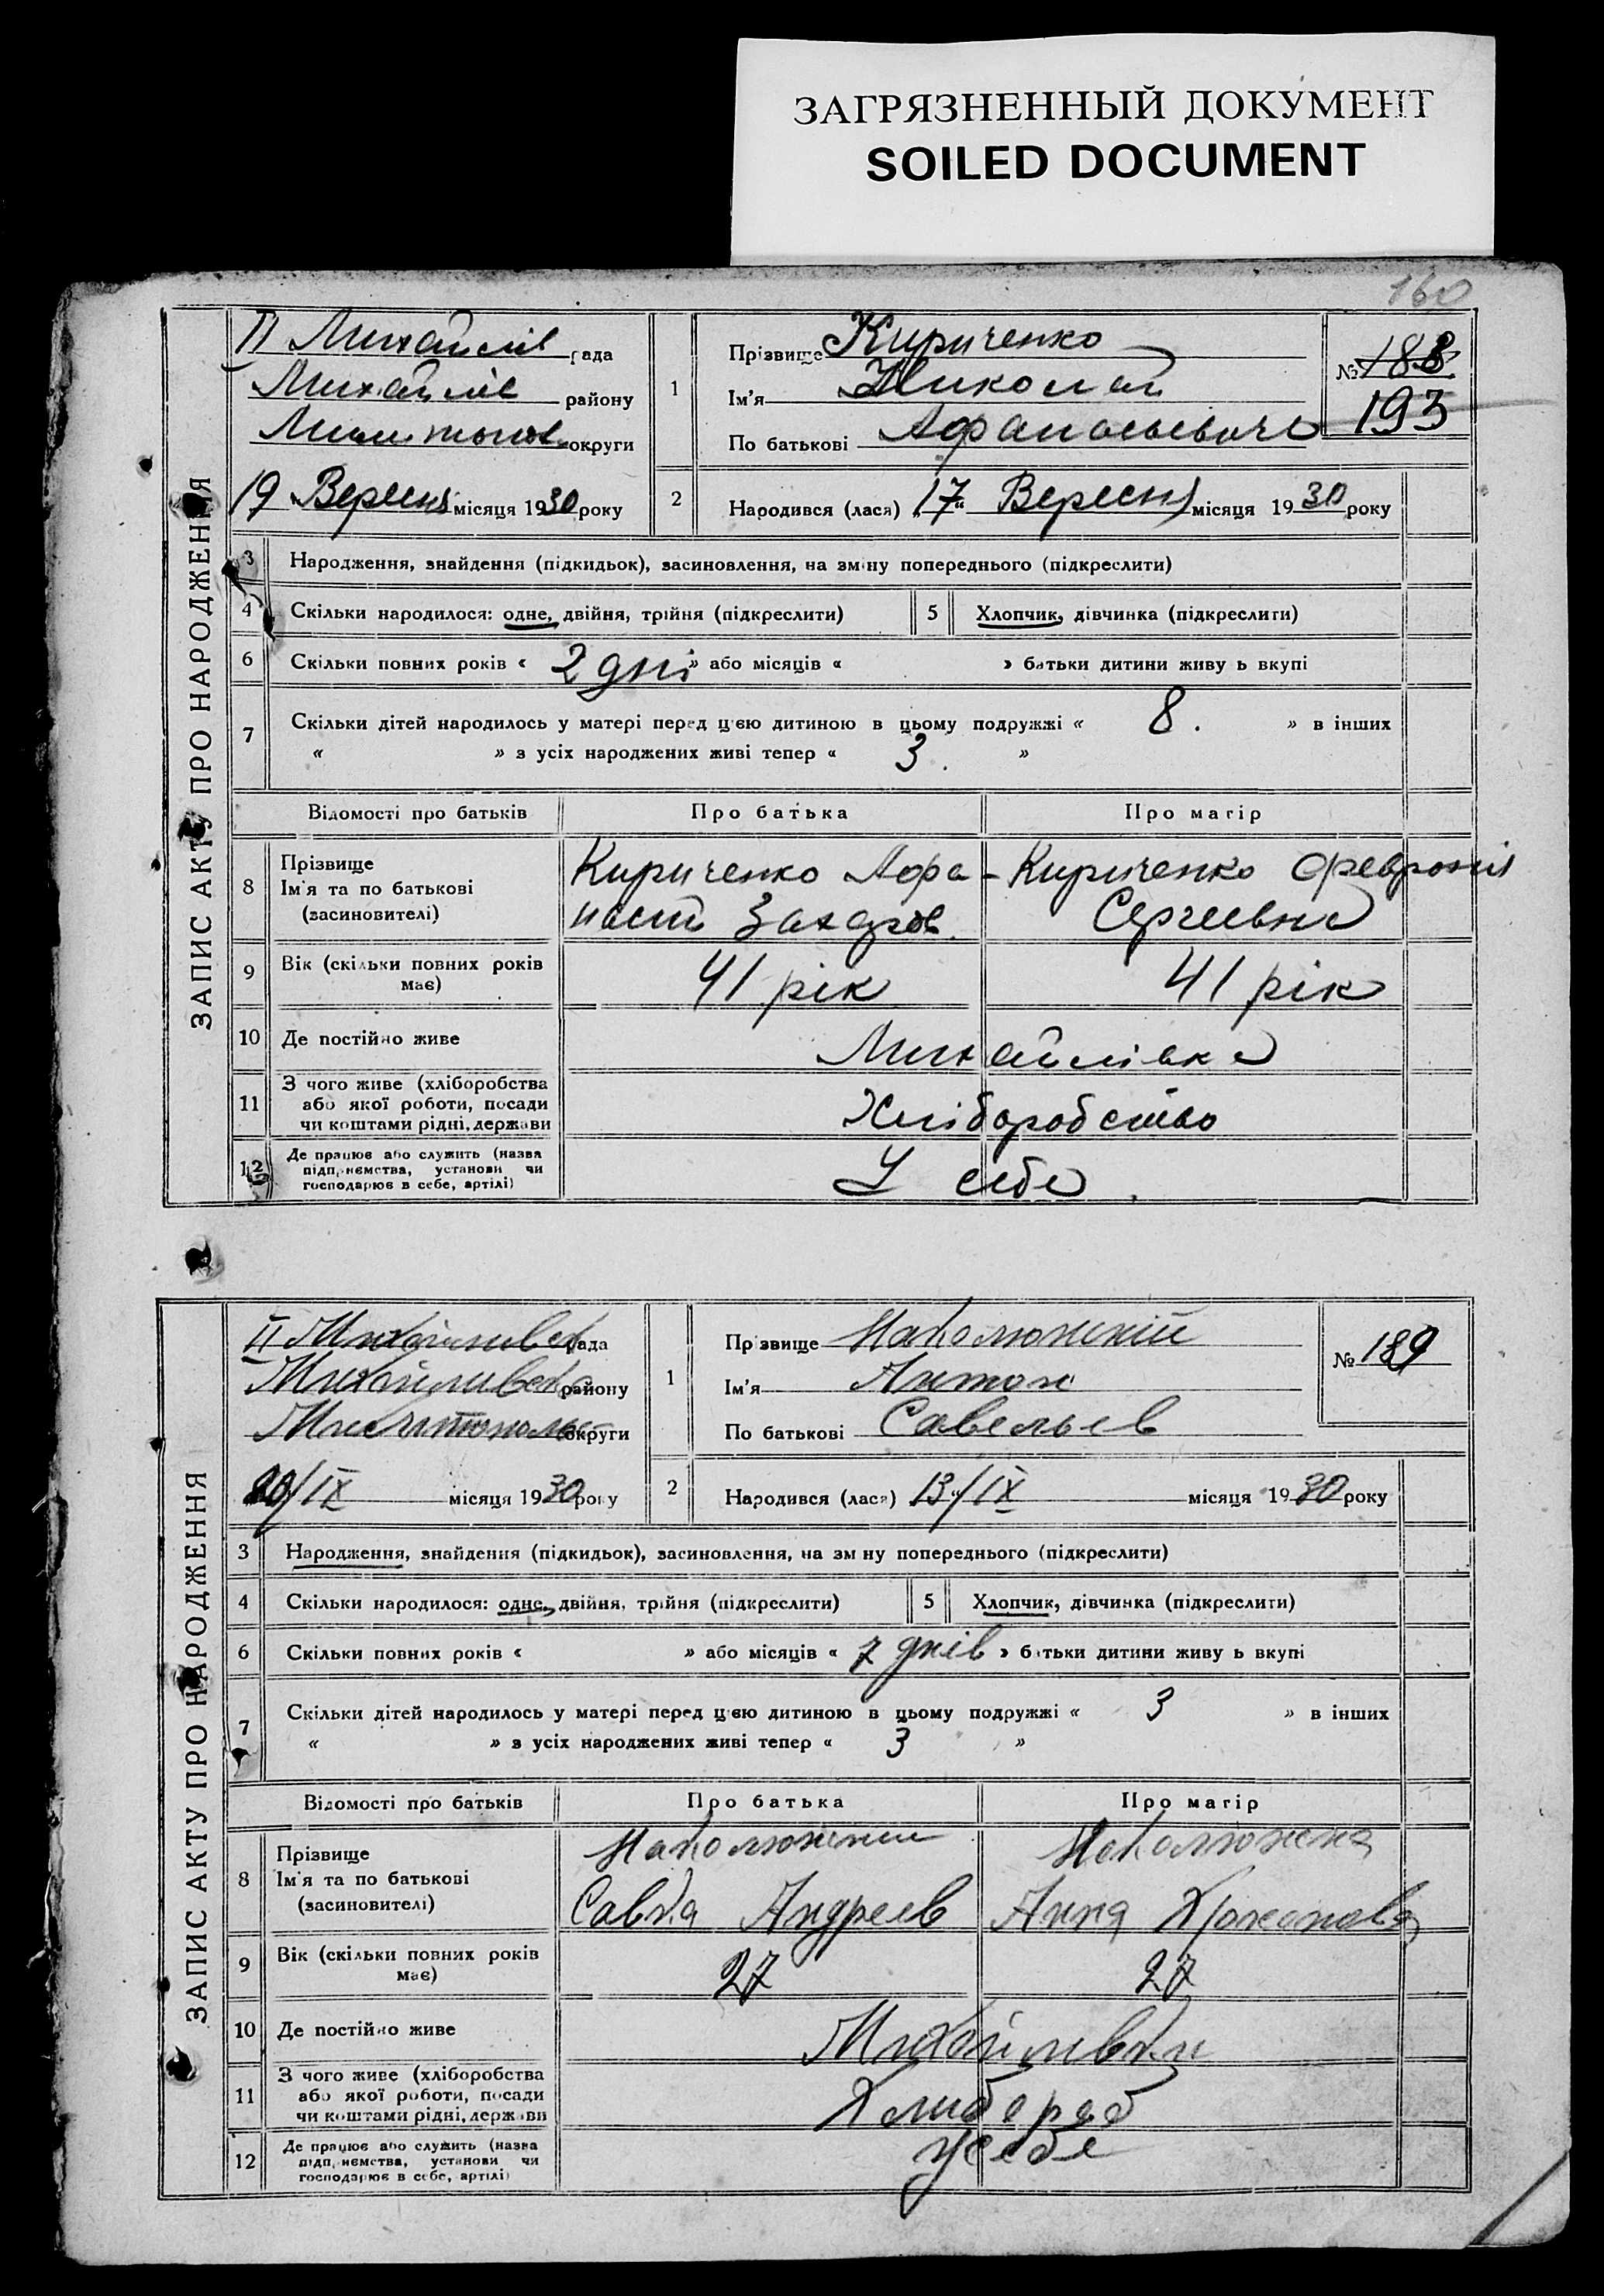 ЗАГРЯЗНЕННЫЙ ДОКУМЕНТ
SOILED DOCUMENT
160
ЗАПИС АКТУ ПРО НАРОДЖЕННЯ
II Михайлів рада
Михайлів району
округи
19 Вересня місяця 1930 року
1
Прізвище Кириченко
Ім'я Николай
По батькові Афанасьевич
№ 188
193
2
Народився (лася) „17“ Вересня місяця 1930 року
3 Народження, знайдення (підкидьок), засиновлення, на зміну попереднього (підкреслити)
4 Скільки народилося: одне, двійня, трійня (підкреслити) 5 Хлопчик, дівчинка (підкреслити)
6 Скільки повних років « 2 дні » або місяців « » батьки дитини живу ь вкупі
7 Скільки дітей народилось у матері перед цією дитиною в цьому подружжі « 8. » в інших
« » з усіх народжених живі тепер « 3. »
Відомості про батьків Про батька Про матір
8 Прізвище
Ім'я та по батькові
(засиновителі)
Кириченко Афа-
насій Захаров.
Кириченко Февронія
Сергеевна
9 Вік (скільки повних років
має)
41 рік 41 рік
10 Де постійно живе Михайлівка
11 З чого живе (хліборобства
або якої роботи, посади
чи коштами рідні, держави
Хліборобство
12 Де працює або служить (назва
підприємства, установи чи
господарює в себе, артілі)
У себе.
ЗАПИС АКТУ ПРО НАРОДЖЕННЯ
II рада
району
округи
20/IX місяця 1930 року
1
Прізвище
Ім'я Антон
По батькові Савельев
№ 189
2
Народився (лася) 13/IX місяця 1930 року
3 Народження, знайдення (підкидьок), засиновлення, на зм ну попереднього (підкреслити)
4 Скільки народилося: одне, двійня, трійня (підкреслити) 5 Хлопчик, дівчинка (підкреслити)
6 Скільки повних років « » або місяців « 7 днів » батьки дитини живу ь вкупі
7 Скільки дітей народилось у матері перед цією дитиною в цьому подружжі « 3 » в інших
« » з усіх народжених живі тепер « 3 »
Відомості про батьків Про батька Про матір
8 Прізвище
Ім'я та по батькові
(засиновителі)
Савка Андреев
Анна
9 Вік (скільки повних років
має)
27 27
10 Де постійно живе
11 З чого живе (хліборобства
або якої роботи, посади
чи коштами рідні, держави
Хлибороб
12 Де працює або служить (назва
підприємства, установи чи
господарює в себе, артілі)
у себе